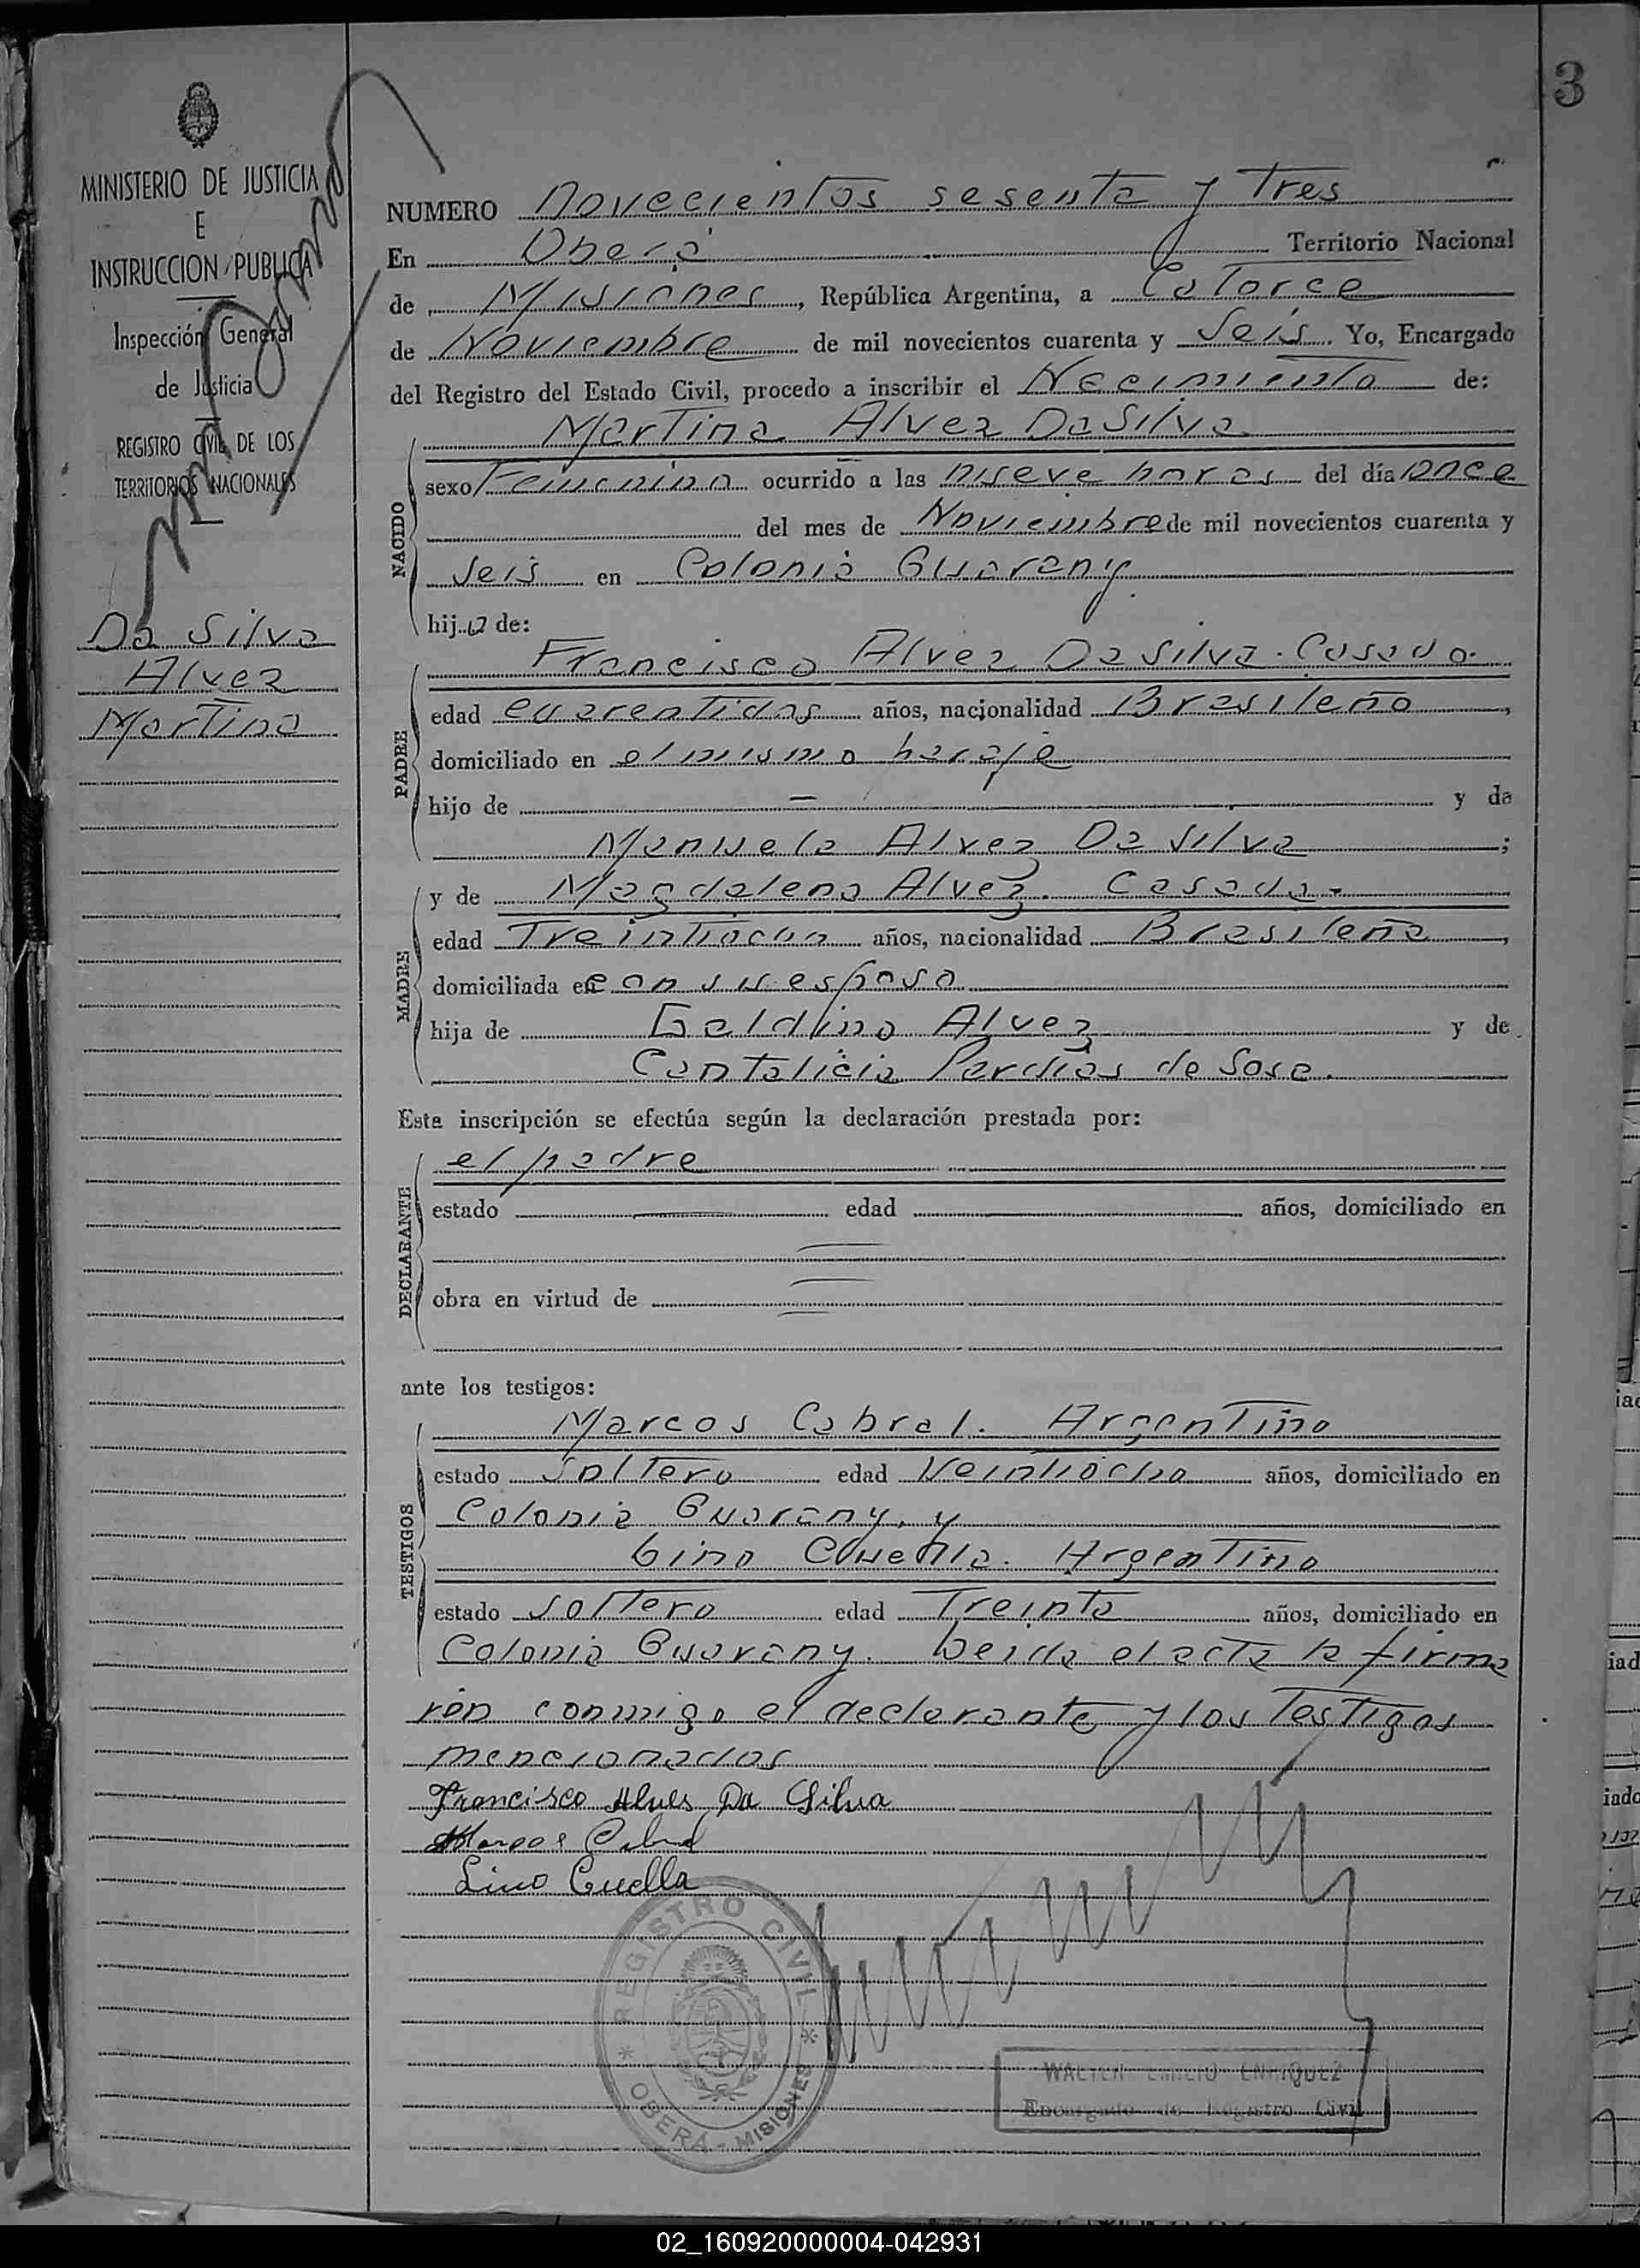 3
MINISTERIO DE JUSTICIA
E
INSTRUCCION PUBLICA
Inspección General
de Justicia
REGISTRO CIVIL DE LOS
TERRITORIOS NACIONALES
Da Silva
Alvez
Martina
NUMERO Novecientos sesenta y Tres
En Oberá Territorio Nacional
de Misiones, República Argentina, a Catorce
de Noviembre de mil novecientos cuarenta y Seis. Yo, Encargado
del Registro del Estado Civil, procedo a inscribir el Nacimiento de:
Martina Alvez Da Silva
NACIDO
sexo Femenino ocurrido a las nueve horas del día once
del mes de Noviembre de mil novecientos cuarenta y
Seis en Colonia Guarany.
hija de:
Francisco Alvez Da Silva. Casado.
PADRE
edad cuarentidos años, nacionalidad Brasileño,
domiciliado en el mismo paraje
hijo de — y de
Manuela Alvez Da Silva;
y de Magdalena Alvez. Casada.
MADRE
edad Treintiocho años, nacionalidad Brasileña,
domiciliada en con su esposo
hija de Galdino Alvez y de
Cantalicia de Sosa.
Esta inscripción se efectúa según la declaración prestada por:
el padre
DECLARANTE
estado — edad — años, domiciliado en
obra en virtud de
ante los testigos:
Marcos Cabral. Argentino
TESTIGOS
estado Soltero edad Veintiocho años, domiciliado en
Colonia Guarany, y
Lino Cuella. Argentino
estado soltero edad Treinta años, domiciliado en
Colonia Guarany. Leida el acta la firma
ron conmigo el declarante y los Testigos
mencionados
Francisco Alves Da Silva
Marcos Cabral
Lino Cuella
REGISTRO CIVIL
OBERÁ - MISIONES
WALTER EMILIO ENRIQUEZ
Encargado de Registro Civil
02_160920000004-042931